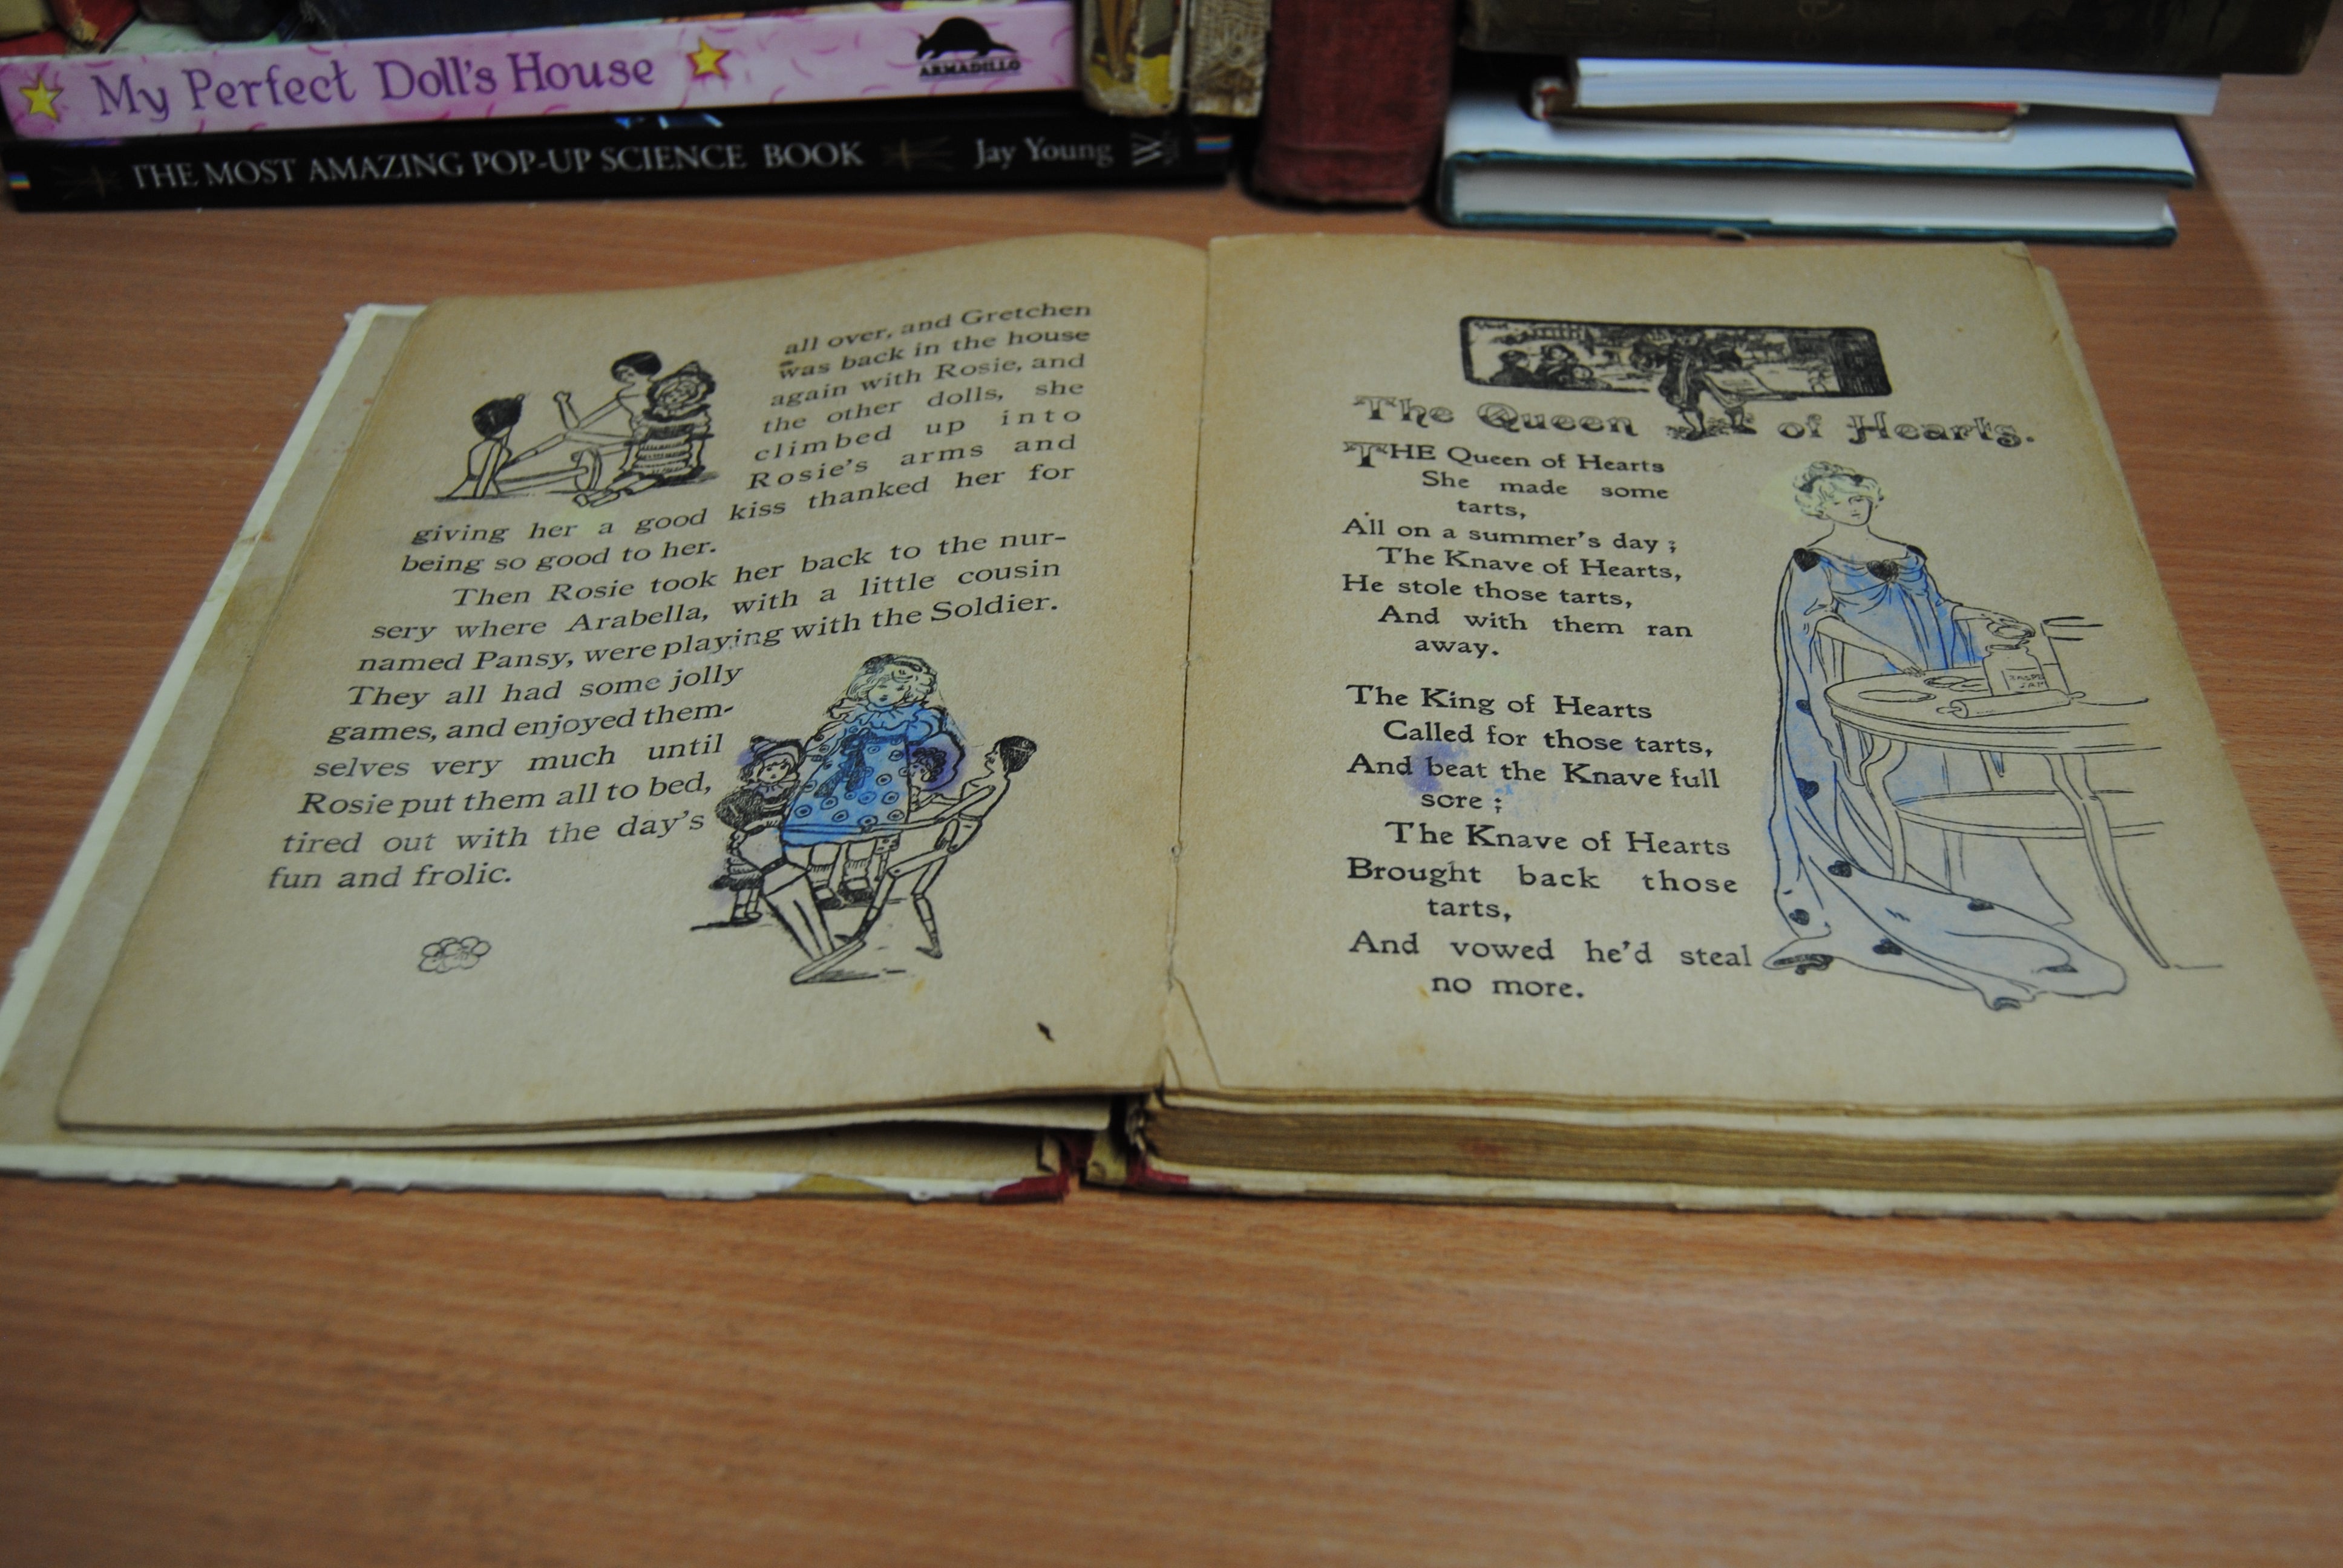 My Perfect Doll's House
ARMADILLO
THE MOST AMAZING POP-UP SCIENCE BOOK Jay Young
all over, and Gretchen
was back in the house
again with Rosie, and
the other dolls, she
climbed up into
Rosie's arms and
giving her a good kiss thanked her for
being so good to her.
Then Rosie took her back to the nur-
sery where Arabella, with a little cousin
named Pansy, were playing with the Soldier.
They all had some jolly
games, and enjoyed them-
selves very much until
Rosie put them all to bed,
tired out with the day's
fun and frolic.
The Queen of Hearts.
THE Queen of Hearts
She made some
tarts,
All on a summer's day;
The Knave of Hearts,
He stole those tarts,
And with them ran
away.
The King of Hearts
Called for those tarts,
And beat the Knave full
sore;
The Knave of Hearts
Brought back those
tarts,
And vowed he'd steal
no more.